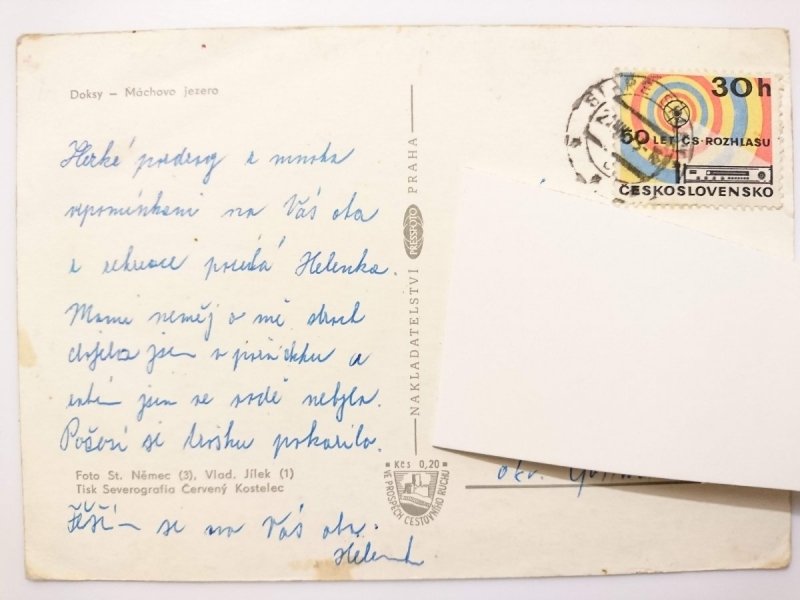 Doksy – Máchovo jezero
Hezké pozdravy z mnoha
vzpomínkami na Vás oba
z rekreace posílá Helenka.
Mami neměj o mě strach
dojela jsem v pořádku a
zatím jsem ve vodě nebyla.
Počasí se trošku pokazilo.
Foto St. Němec (3), Vlad. Jílek (1)
Tisk Severografia Červený Kostelec
Těším se na Vás oba.
Helenka
NAKLADATELSTVÍ PRESSFOTO PRAHA
Kčs 0,20
VE PROSPĚCH CESTOVNÍHO RUCHU
30 h
50 LET ČS. ROZHLASU
ČESKOSLOVENSKO
okr.